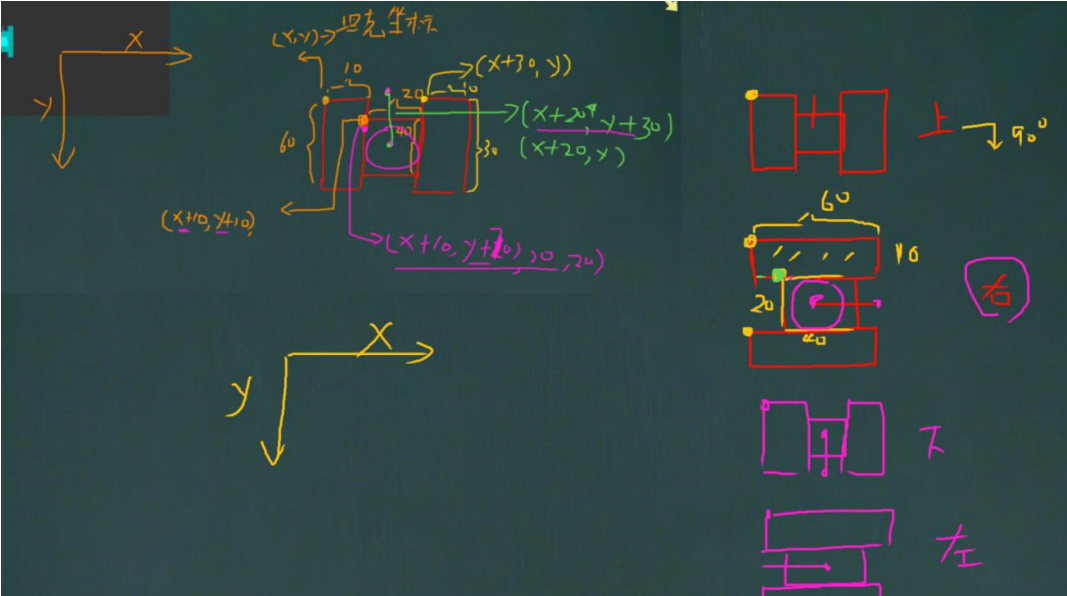 X
y
(x,y)→坦克坐标
10
20
10
(x+30, y)
60
40
30
(x+20, y+30)
(x+20, y)
(x+10, y+10)
(x+10, y+10), 20, 20)
X
y
上
90°
60
10
20
40
右
下
左